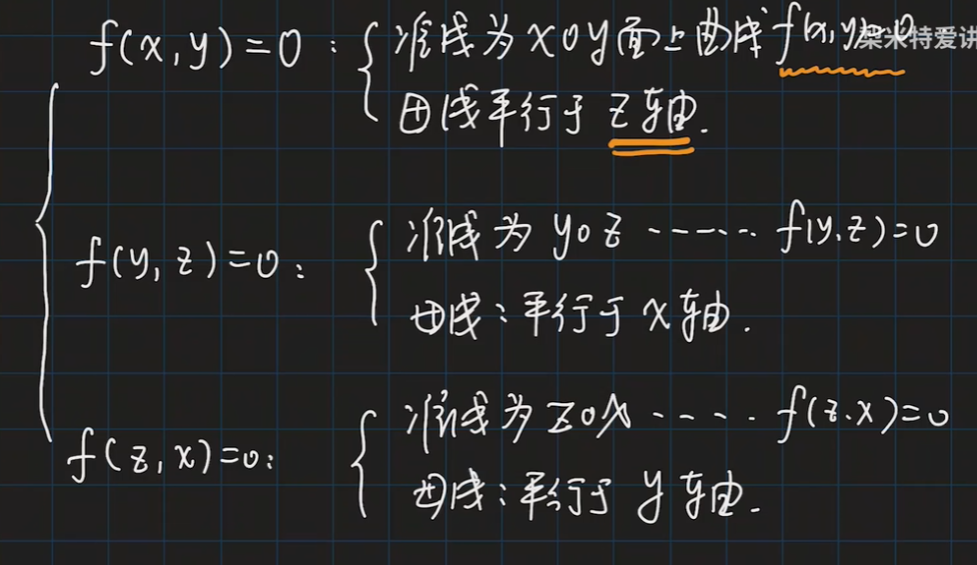 f(x,y)=0：准线为xoy面上曲线f(x,y)=0
母线平行于z轴.
f(y,z)=0：准线为yoz------f(y.z)=0
母线：平行于x轴.
f(z,x)=0：准线为zox----f(z.x)=0
母线：平行于y轴.
米特爱讲